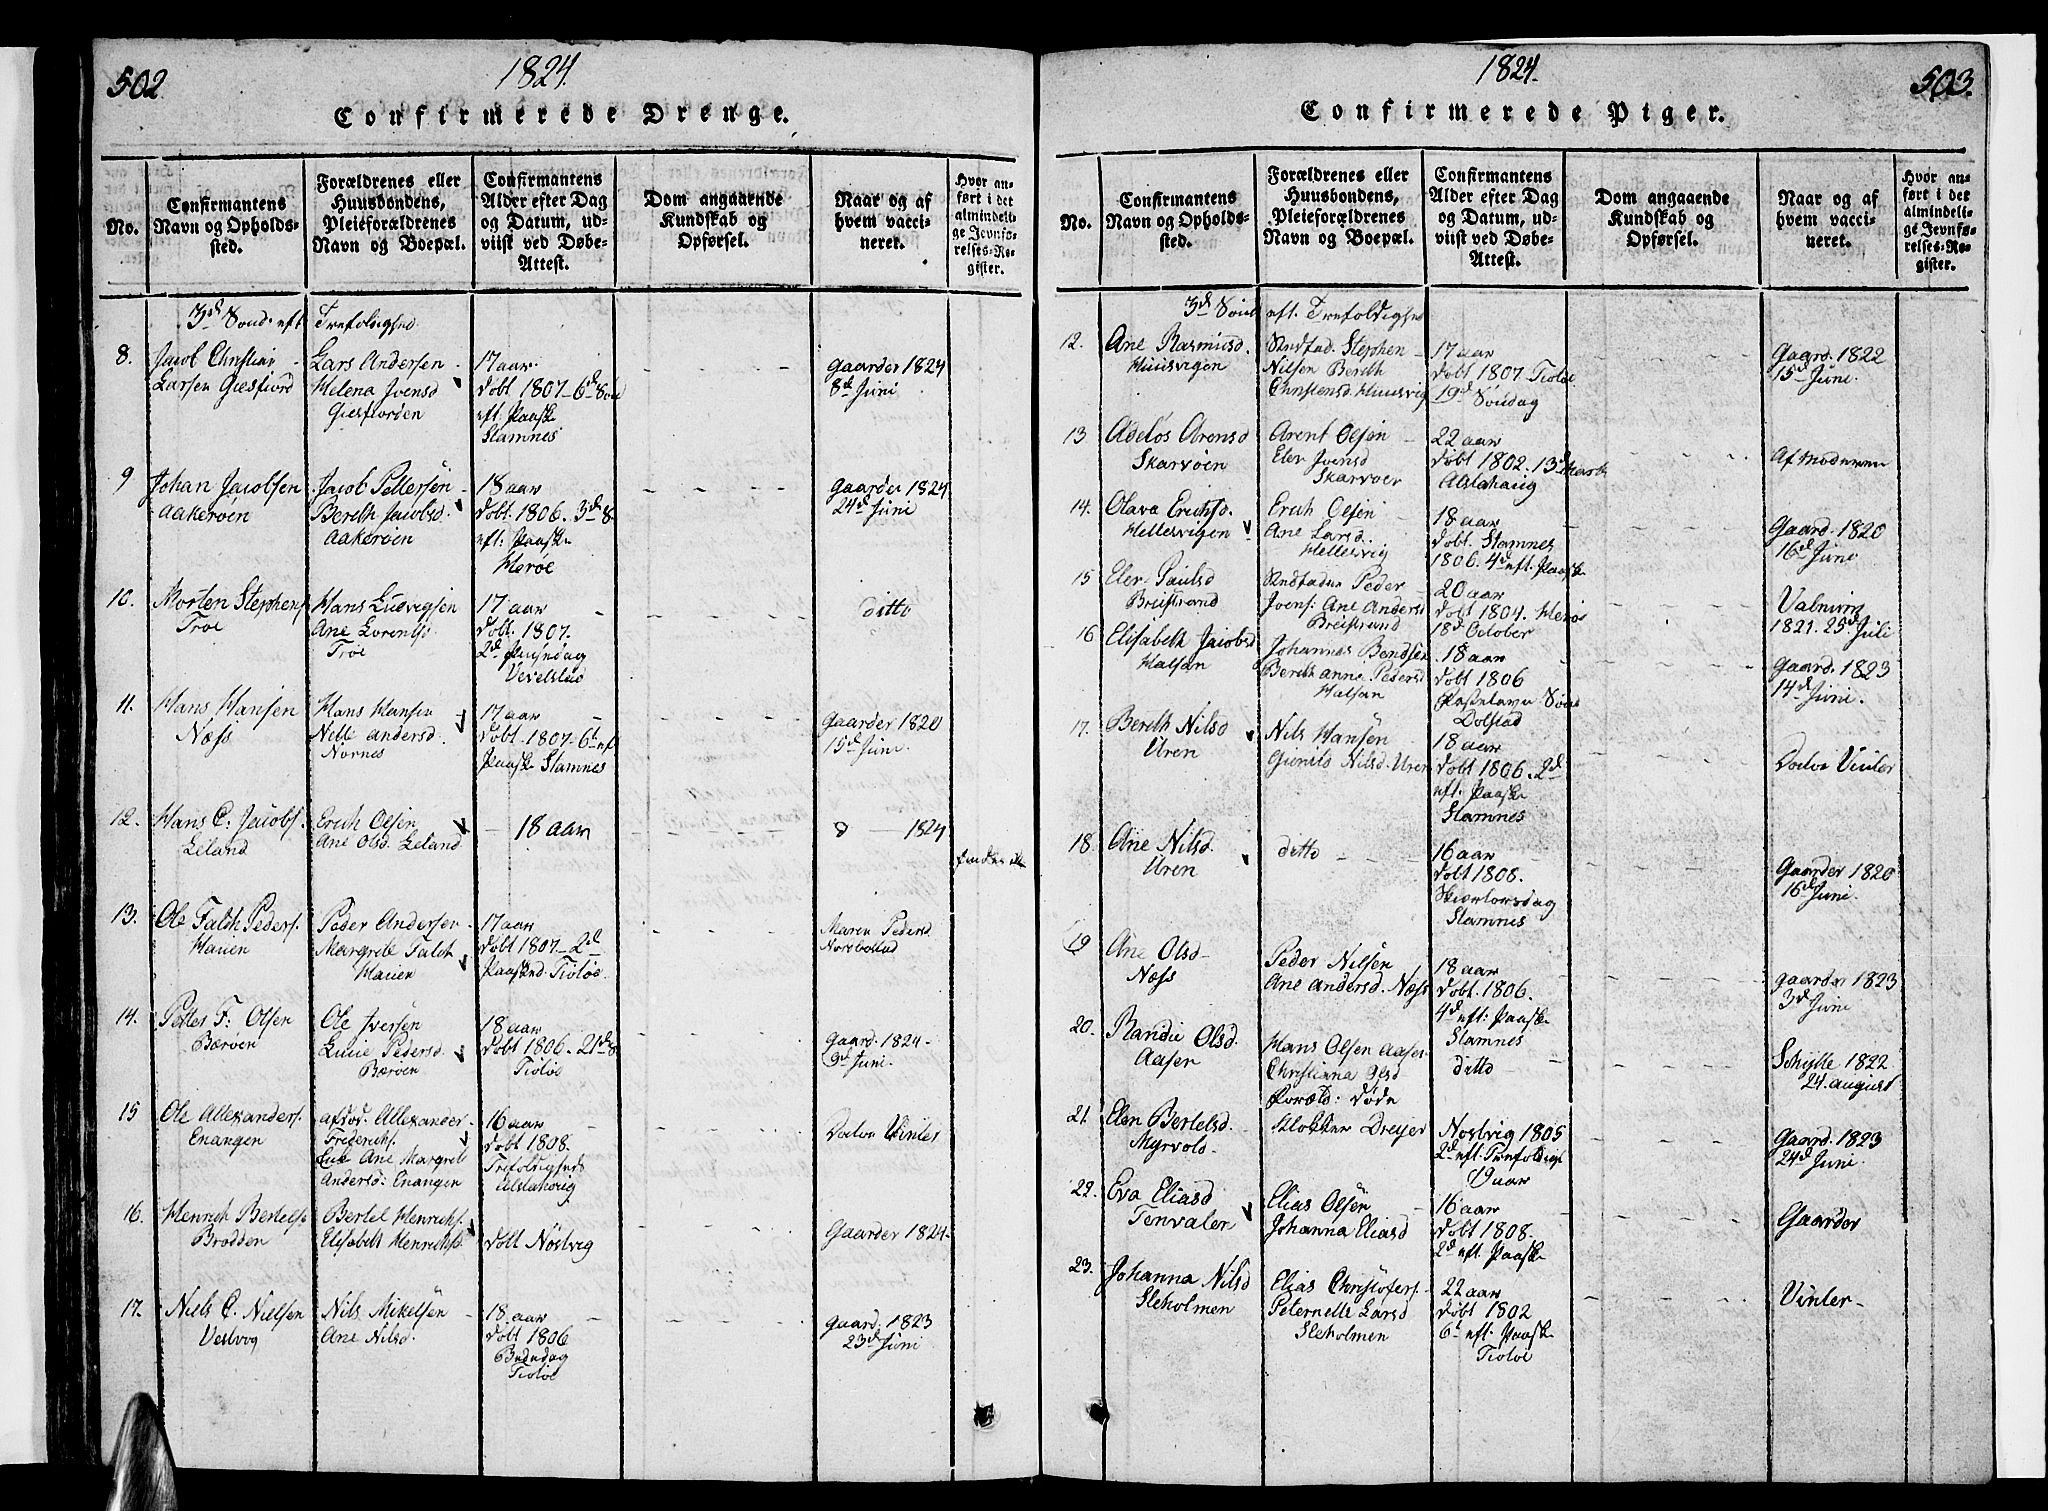 502
1824.
Confirmerede Drenge.
No.
Confirmantens
Navn og Opholds-
sted.
Forældrenes eller
Huusbondens,
Pleieforældrenes
Navn og Boepæl.
Confirmantens
Alder efter Dag
og Datum, ud-
viist ved Døbe-
Attest.
Dom angaaende
Kundskab og
Opførsel.
Naar og af
hvem vacci-
neret.
Hvor an-
ført i det
almindeli-
ge Jevnfø-
relses-Re-
gister.
3d Sønd. eft Trefoldighed.
8.
Jacob Christian
Larsen Giesfiord
Lars Andersen
Helena Jvensd
Giesfiorden
17 aar
døbt 1807 - 6d Søn
eft. Paaske
Stamnes
Gaarder 1824
8d Juni
9
Johan Jacobsen
Aakervøen
Jacob Pettersen
Bereth Jacobsd.
Aakervøen
18 aar
døbt. 1806. 3d S
eft: Paaske
Herøe
Gaarder 1824
24d Juni
10.
Morten Stephens
Troe
Hans Ludvigsen
Ane Lorentsd.
Troe
17 aar
døbt. 1807.
2d
Vevelstad
ditto
11.
Hans Hansen
Næss
Hans Hansen
Nelle Andersd.
Nornes
17 aar
døbt. 1807 - 6t ef
Paaske Stamnes
Gaarder 1820
15d Juni.
12.
Hans C: Jacobs.
Leland
Erich Olsen
Ane Olsd. Leland
18 aar
1824
13.
Ole Falch Peders.
Hauen
Peder Andersen
Margrete Falch
Hauen
17 aar
døbt 1807 - 2d
Paasked. Tiøtøe.
Maren Pedersd
14.
Petter F: Olsen
Bærøen
Ole Iversen
Lucie Pedersd.
Bærøen
18 aar
døbt 1806. 21d S
Tiøtøe
Gaard. 1824 -
9d Juni.
15
Ole Allexanders.
Enangen
afdød. Allexander
Friderichs.
Enk Ane Margrete
Andersd: Enangen
16 aar
døbt 1808.
Trefoldigheds
Alstahoug
Doctor Vinter
16.
Henrich Bertels.
Brodden
Bertel Henrichs.
Elisabeth Henrichsd.
døbt Nøstvig
Gaarder 1824.
17.
Niels C. Nielsen
Vestvog
Nils Mikelsen
Ane Nilsd.
18 aar
døbt 1806
Bededag
Tiøtøe
Gaard. 1823
23d Juni
1824.
503.
Confirmerede Piger.
No.
Confirmantens
Navn og Opholds-
sted.
Forældrenes eller
Huusbondens,
Pleieforældrenes
Navn og Boepæl.
Confirmantens
Alder efter Dag
og Datum, ud-
viist ved Døbe-
Attest.
Dom angaaende
Kundskab og
Opførsel.
Naar og af
hvem vacci-
neret.
Hvor an-
ført i det
almindeli-
ge Jevnfø-
relses-Re-
gister.
3d Sønd eft. Trefoldighed
12.
Ane Rasmusd.
Huusvigen
Stephen
Nilsen Bereth
Christensd. Huusvig
17 aar
døbt 1807 Tiøtøe
19d Søndag
Gaard. 1822
15d Juni.
13
Adelos Arensd
Skarvøen
Arent Olsen
Elen Jvensd
Skarvøen
22 aar
døbt 1802. 13d Marts
Alstahaug
Af Moderen
14.
Olava Erichsd.
Hellesvigen
Erich Olsen
Ane Larsd.
Hellesvig
18 aar
døbt. Stamnes
1806. 4d eft. Paaske
Gaard. 1820
16d Juni
15
Elen Paulsd
Breistrand
Peder
Jvens: Ane Anders
Breistrand
20 aar
døbt 1804. Herøe
18d October
1821. 25d Juli
16
Elisabeth Jacobsd
Halsan
Johannes Bendsen
Bereth anna Pedersd
Halsan
18 aar
døbt 1806
Fastelavns Sønd
Dolstad
Gaard. 1823
14d Juni.
17.
Bereth Nilsd
Uren
Nils Hansen
Gunild Nilsd. Uren
18 aar
døbt 1806. 2d
eft. Paaske
Stamnes
Doctor Vinter
18.
Ane Nilsd.
Uren
ditto
16 aar
døbt 1808.
Skiærtorsdag
Stamnes
Gaarder 1820
16d Juni.
19
Ane Olsd
Næss
Peder Nilsen
Ane Andersd. Næss
18 aar
døbt. 1806.
4d eft: Paaske
Stamnes
Gaarder 1823
3d Juni
20.
Randie Olsd.
Aasen
Hans Olsen Aasen
Christianna Olsd
Foræld: døde
ditto
Schytte 1822
24. august
21.
Elen Bertelsd.
Myrvold.
Klokker Dreyer
Nøstvig 1805
2d eft. Trefoldigh
19 aar
Gaard. 1823
24d Juni.
22.
Eva Eliasd
Tenvalen
Elias Olsen
Johanna Eliasd
16 aar
døbt 1808.
2d eft. Paaske
Gaarder
23.
Johanna Nilsd
Sleholmen
Elias Christofers.
Peternelle Larsd
Sleholmen
22 aar
døbt 1802
6t eft. Paaske
Tiøtøe
Vinter